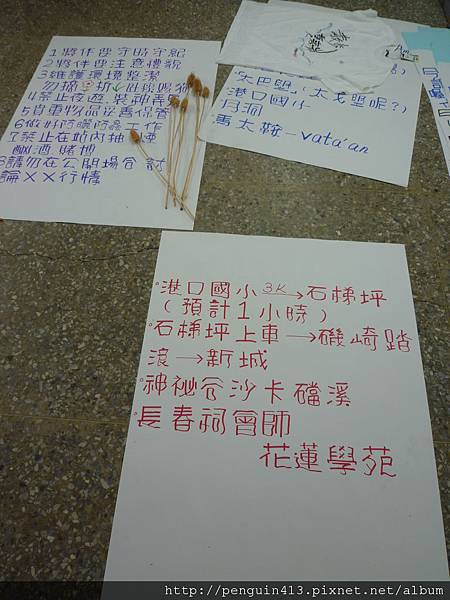 1 將作息守時守紀
2 將作息注意禮貌
3 維護環境整潔
勿摘 折
4 禁止夜遊 裝神弄
5 貴重物品妥善保管
6 做好防曬防蟲工作
7 禁止在境內抽 煙
酗酒 賭博
8 請勿在公開場合討
論XX行情
太巴塱 (太戈塱呢?)
港口國小
月洞
馬太鞍—vata'an
港口國小 3K→石梯坪
(預計1小時)
石梯坪上車→磯崎踏
浪→新城
神祕谷沙卡礑溪
長春祠會師
花蓮學苑
http://penguin413.pixnet.net/album